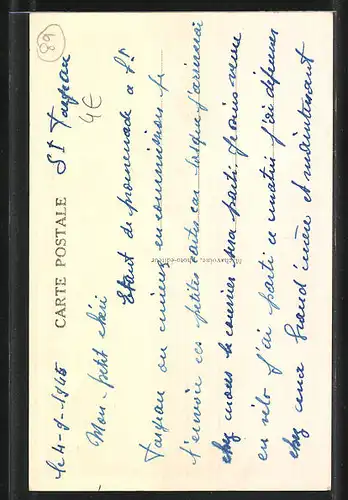 89
4€
CARTE POSTALE
le 4-9-1945 St Jargeau
Mon petit chéri
Etant de promenade a St
Jargeau ou cimenz en commission je
t'envoie ces petites cartes car lorsque j'arriverai
chez nous le courrier sera parti. Je suis venu
en vélo j'ai parti ce matin j'ai déjeuner
chez ceux Grand'mère et maintenant
photo-éditeur